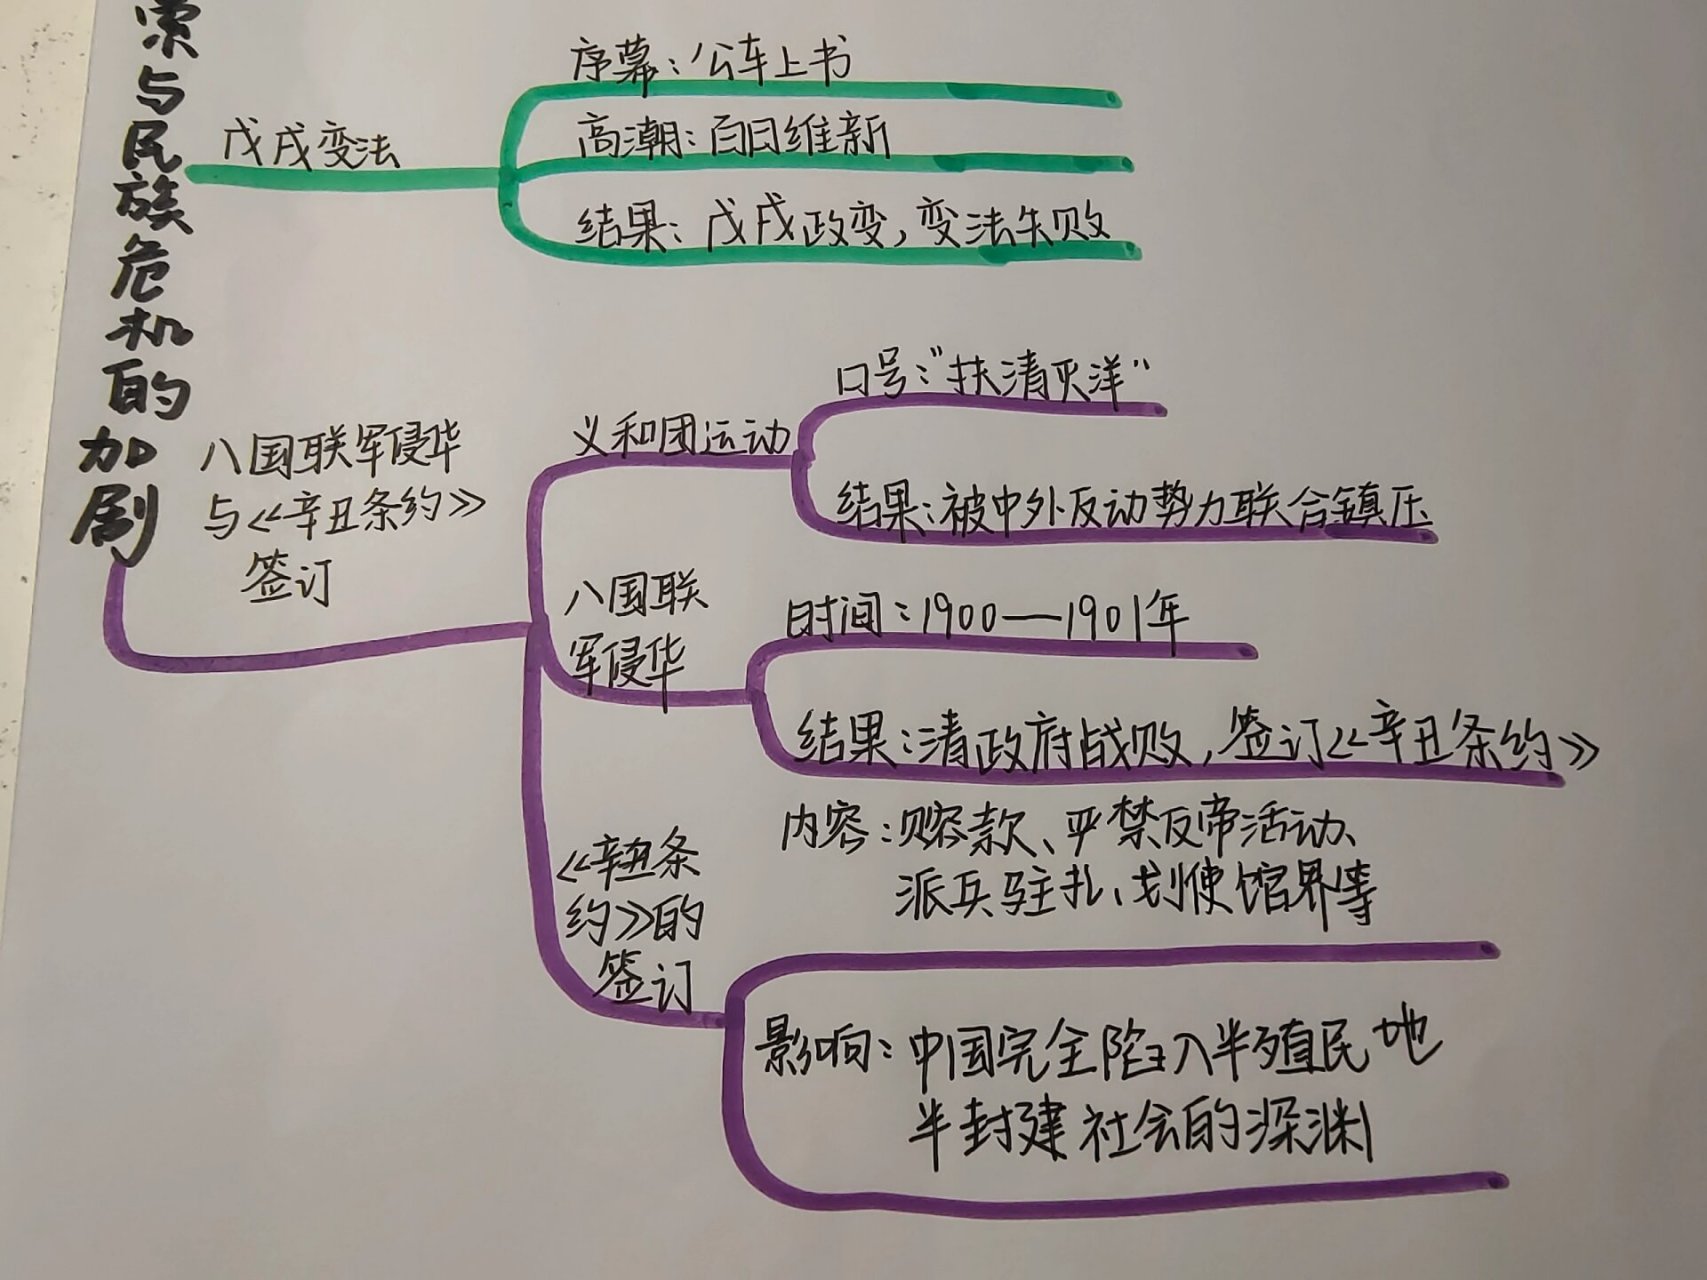 索与民族危机的加剧
戊戌变法
序幕：公车上书
高潮：百日维新
结果：戊戌政变，变法失败
八国联军侵华
与《辛丑条约》
签订
义和团运动
口号：“扶清灭洋”
结果：被中外反动势力联合镇压
八国联
军侵华
时间：1900—1901年
结果：清政府战败，签订《辛丑条约》
《辛丑条
约》的
签订
内容：赔款、严禁反帝活动、
派兵驻扎、划使馆界等
影响：中国完全陷入半殖民地
半封建社会的深渊